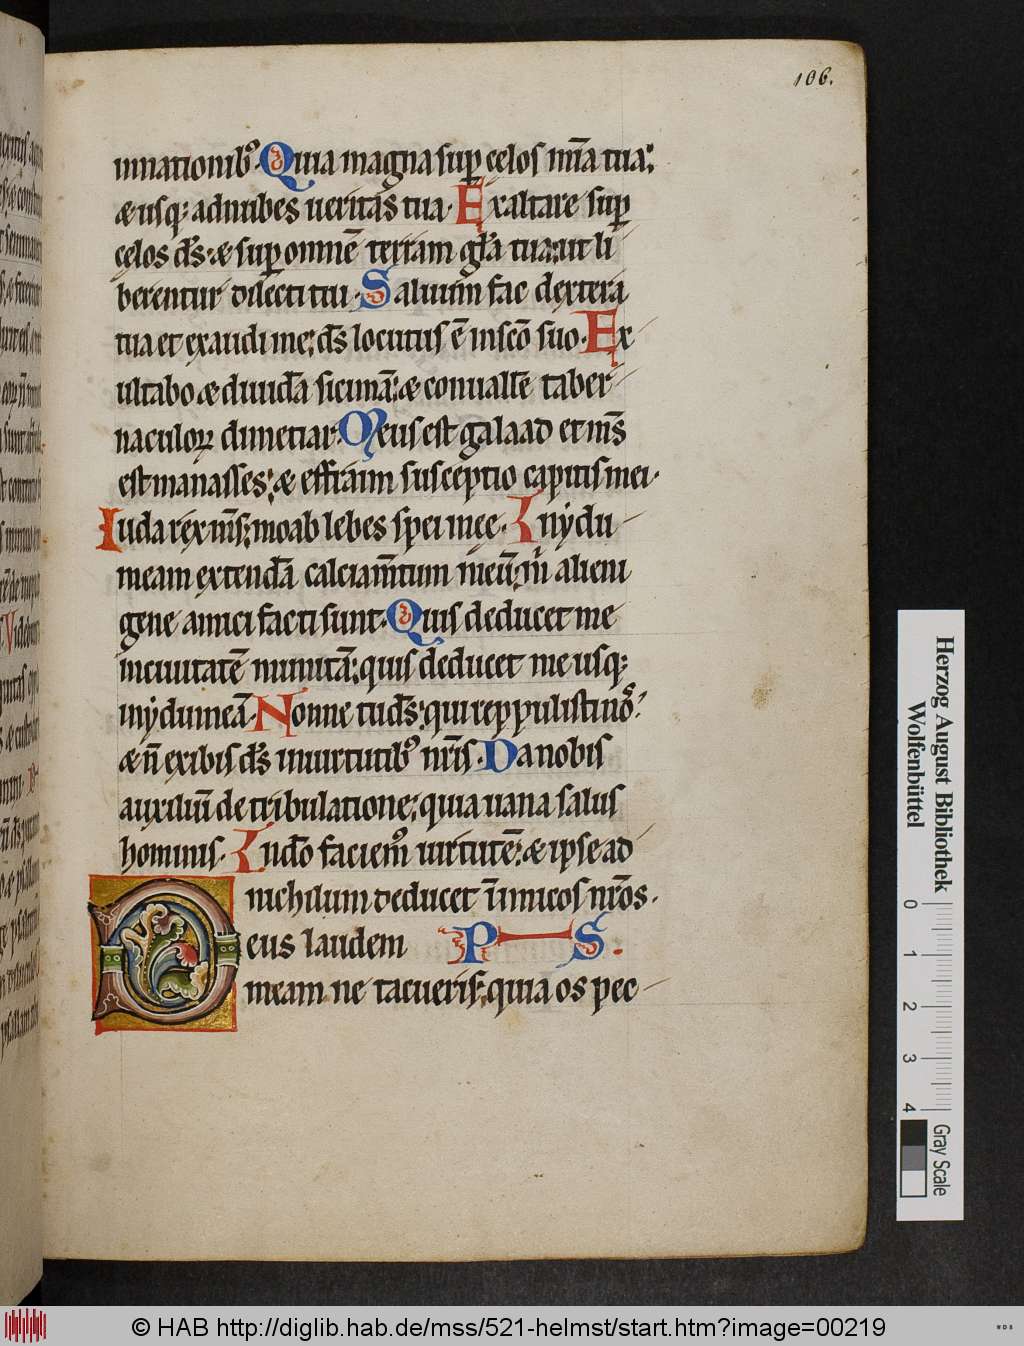 106.
innationib⁹. Quia magna sup celos mīa tua:
& usq; ad nubes ueritas tua. Exaltare sup
celos d̄s: & sup omnē terram gl̄a tua: ut li
berentur dilecti tui. Saluum fac dextera
tua et exaudi me: d̄s locutus ē in sc̄o suo. Ex
ultabo & diuidā sicimā: & conuallē taber
naculoꝝ dimetiar. Meus est galaad et m̄s
est manasses: & effraim susceptio capitis mei.
Iuda rex m̄s: moab lebes spei mee. In ydu
meam extendā calciam̄tum meū: m alieni
gene amici facti sunt. Quis deducet me
in ciuitatē munitā: quis deducet me usq;
in ydumeā. Nonne tu d̄s: qui reppulisti nos?
& n̄ exibis d̄s in uirtutib⁹ nr̄is. Da nobis
auxiliū de tribulatione: quia uana salus
hominis. In dō faciem⁹ uirtutē: & ipse ad
nichilum deducet īnimicos nr̄os.
Deus laudem PS.
meam ne tacueris: quia os pec
Herzog August Bibliothek
Wolfenbüttel
0 1 2 3 4
Gray Scale
© HAB http://diglib.hab.de/mss/521-helmst/start.htm?image=00219